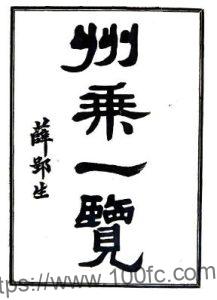 州乘一覽
薛郢生
https://www.100fc.com